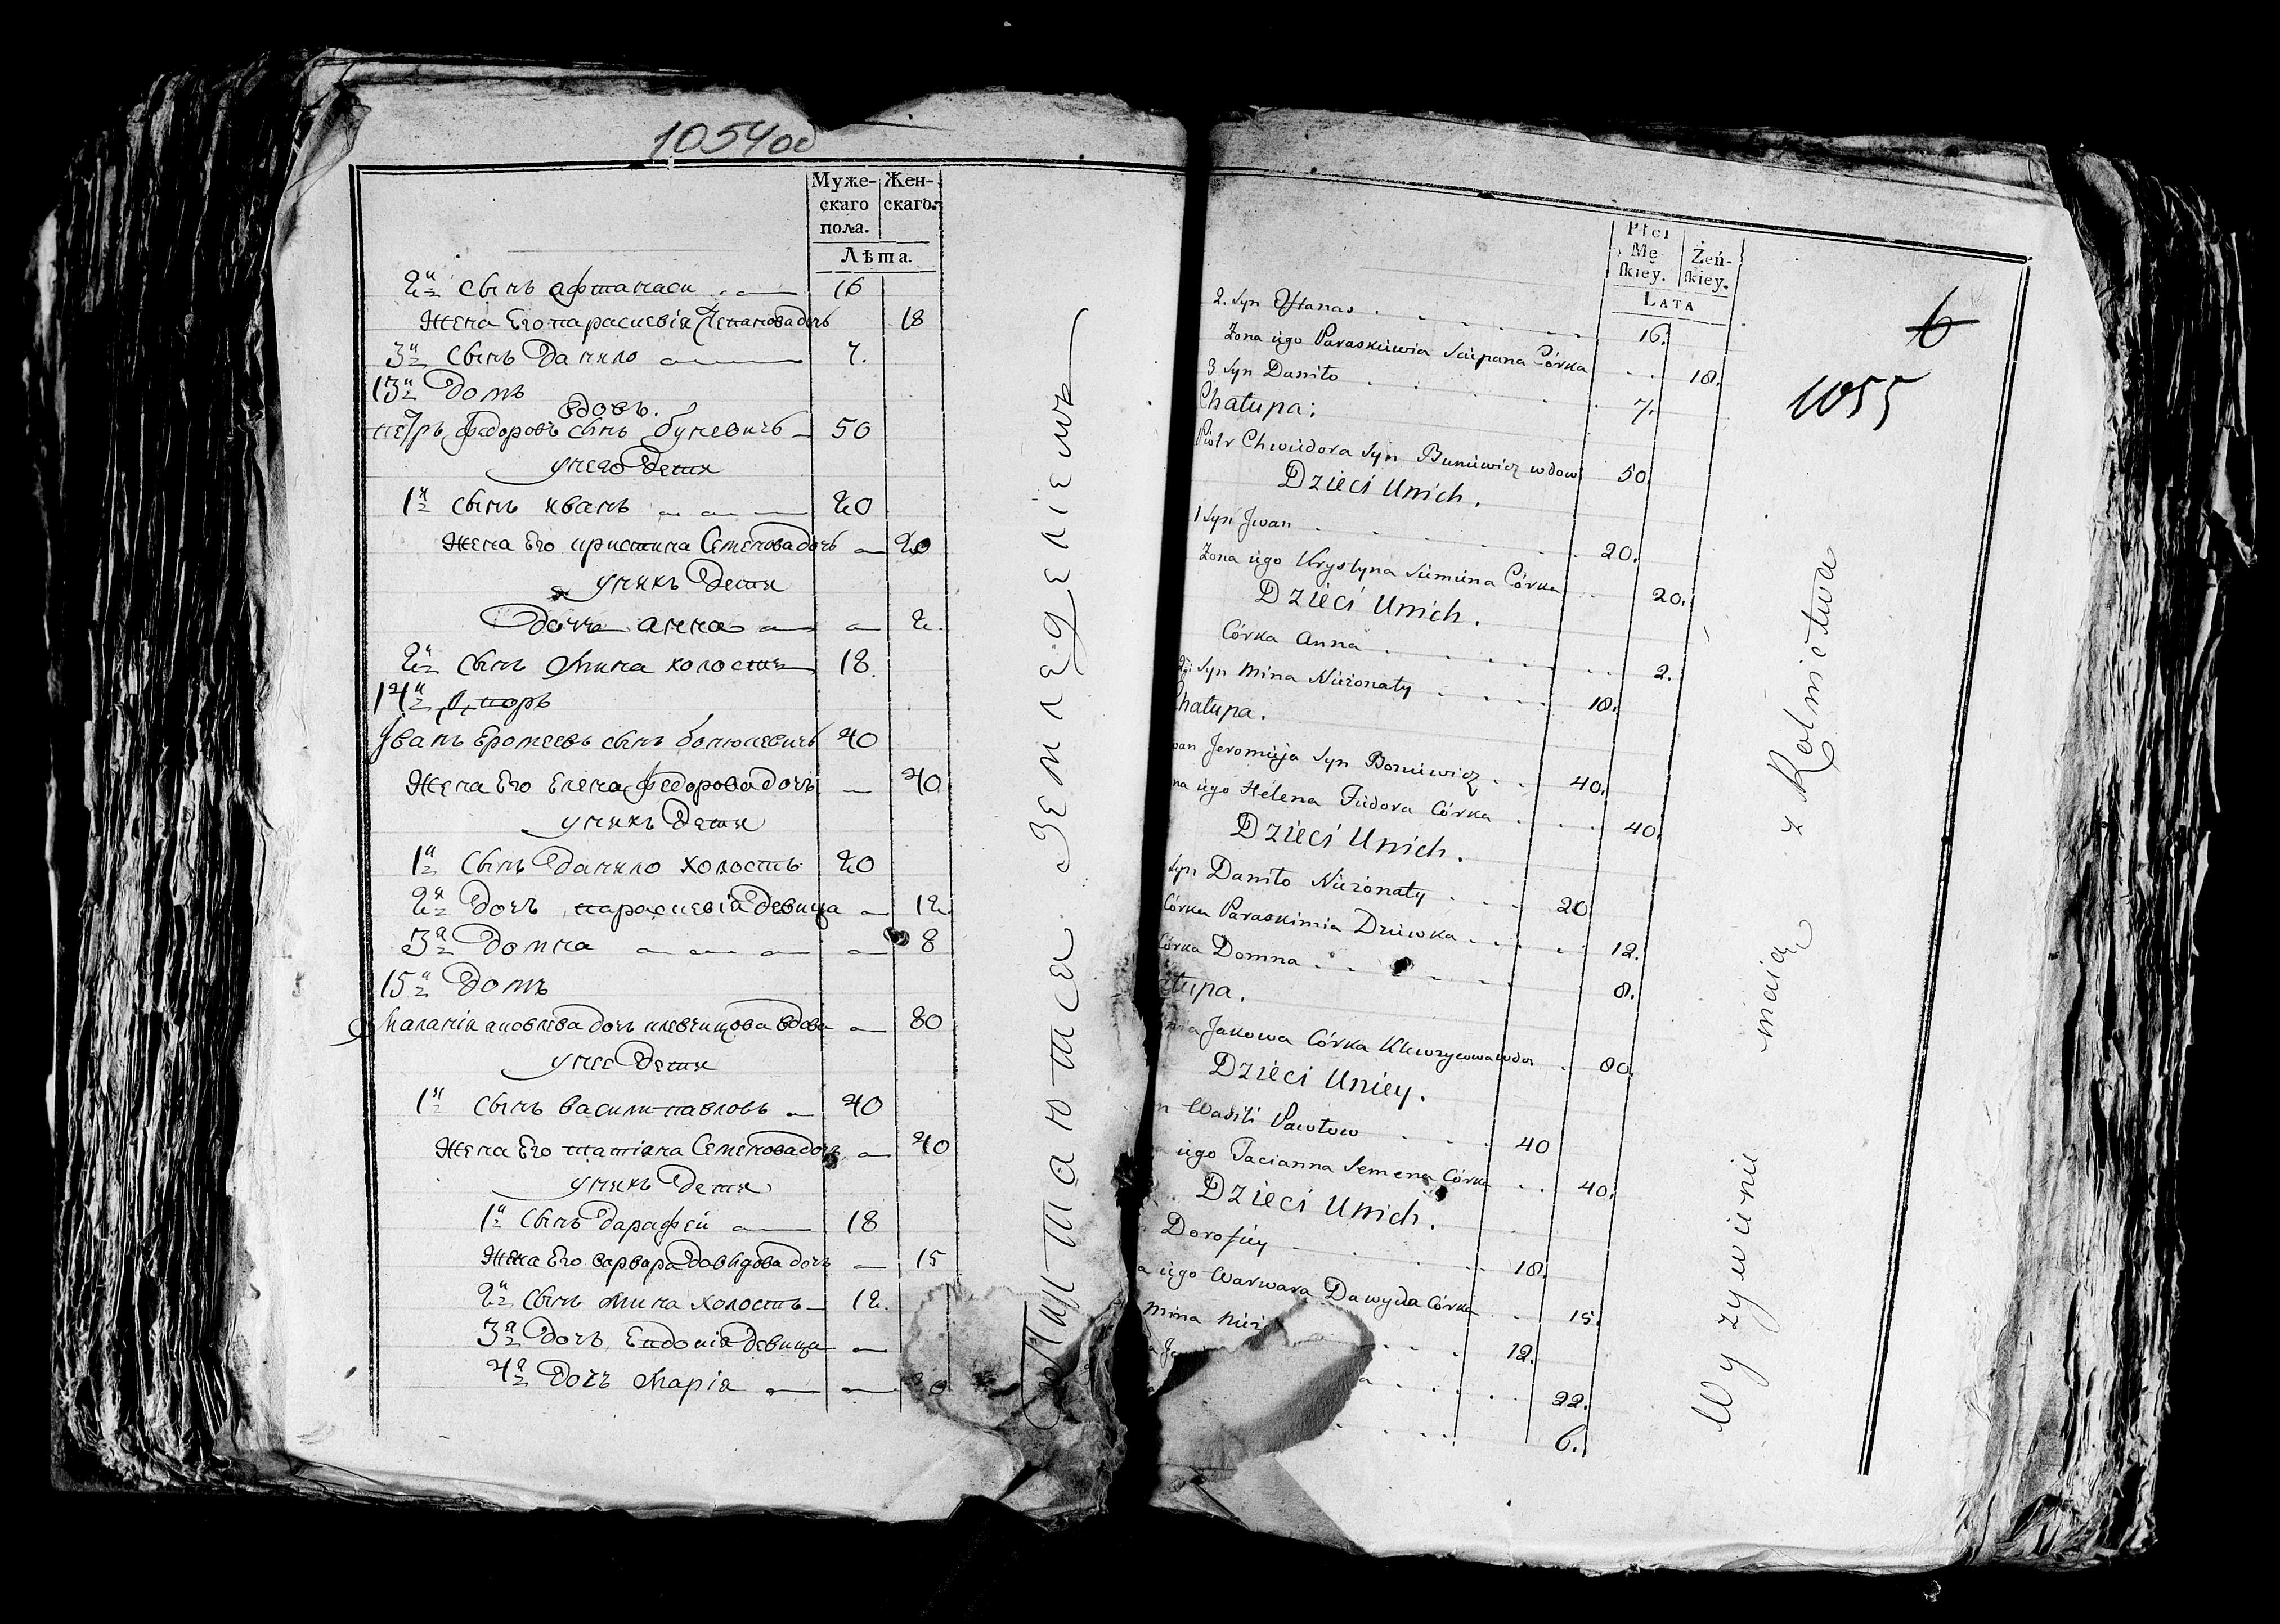 1054 об
Муже-
скаго
пола.
Жен-
скаго.
Лѣта.
2й сынъ афтанаси 16
Жена Его парасцевія Степановадочь 18
3й сынъ Данило 7.
13й Домъ
вдовъ.
петръ федоровъ сынъ буневичъ 50
унего Дети
1й сынъ иванъ 20
жена Его кристина Семеновадочь 20
унихъ Дети
Дочь анна 2.
2й сынъ Мина холостъ 18.
14й Дворъ
Иванъ Еромеевъ сынъ 40
Жена Его Елена федоровадочь 40
унихъ Дети
1й Сынъ Данило холостъ 20
2я Дочь парасцевія Девица 12
3я Домна 8
15й Домъ
Маланія яковлева дочь клевчицова вдова 80
унее Дети
1й сынъ василипавловъ 40
Жена Его татіяна Семеновадочь 40
унихъ Дети
1й Сынъ дарафей 18
Жена Его варвара Довидова дочь 15
2й Сынъ Мина холостъ 12.
3я Дочь Евдокія Девица
4я Дочь Марія
Питаются Земледелiемъ
Płci
Mę-
skiey.
Żeń-
skiey.
LATA
6
1055
2. Syn Aftanas 16.
Żona iego Paraskiewia Sciepana Córka 18.
3 Syn Daniło 7.
Chałupa:
Piotr Chwiedora Syn Buniewicz wdow 50.
Dzieci Unich.
1 Syn Jwan 20.
Żona iego Krystyna Siemiena Córka 20.
Dzieci Unich.
Córka Anna 2.
Syn Mina Nieżonaty 18.
hałupa.
wan Jeromieja Syn Boniewicz 40.
na iego Helena Fiedora Córka 40.
Dzieci Unich.
Syn Daniło Nieżonaty 20
Córka Paraskimia Dziewka 12.
Córka Domna 8.
ałupa.
nia Jakowa Córka wdow 80.
Dzieci Uniey.
n Wasili Pawłow 40
iego Tacianna Semena Córka 40.
Dzieci Unich.
Dorofiey 18.
a iego Warwara Dawyda Córka 15.
Mina Nież 12.
22.
6.
Wyżywienie maią z Rolnictwa